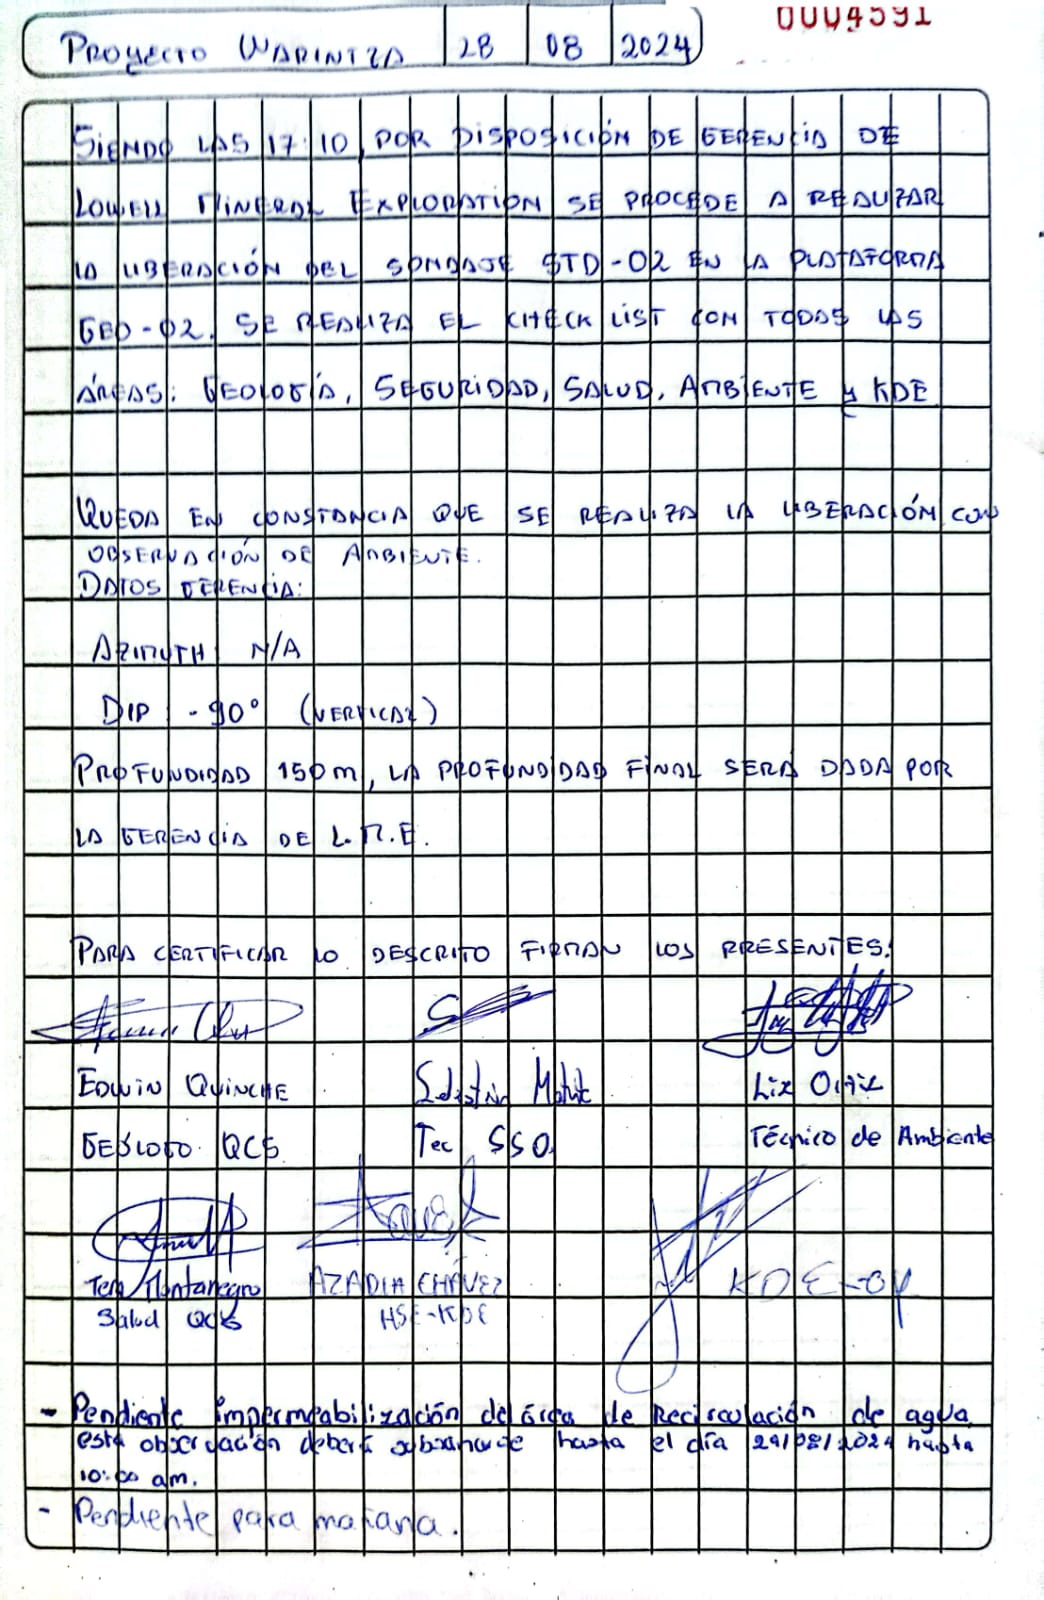 0004591
PROYECTO WARINTZA 28 08 2024
SIENDO LAS 17:10, POR DISPOSICIÓN DE GERENCIA DE
LOWELL MINERAL EXPLORATION SE PROCEDE A REALIZAR
LA LIBERACIÓN DEL SONDAJE STD-02 EN LA PLATAFORMA
GEO-02. SE REALIZA EL CHECK LIST CON TODAS LAS
ÁREAS: GEOLOGÍA, SEGURIDAD, SALUD, AMBIENTE y KDE
QUEDA EN CONSTANCIA QUE SE REALIZA LA LIBERACIÓN CON
OBSERVACIÓN DE AMBIENTE.
DATOS GERENCIA:
AZIMUTH N/A
DIP -90° (VERTICAL)
PROFUNDIDAD 150m, LA PROFUNDIDAD FINAL SERÁ DADA POR
LA GERENCIA DE L.M.E.
PARA CERTIFICAR LO DESCRITO FIRMAN LOS PRESENTES:
EDWIN QUINCHE Liz Ortiz
GEÓLOGO QCS Tec SSO Técnico de Ambiente
Montanegro AZADIA CHÁVEZ KDE-04
Salud QCS HSE-KDE
- Pendiente impermeabilización del área de Recirculación de agua,
esta observación deberá subsanarse hasta el día 29/08/2024 hasta
10:00 am.
- Pendiente para mañana.